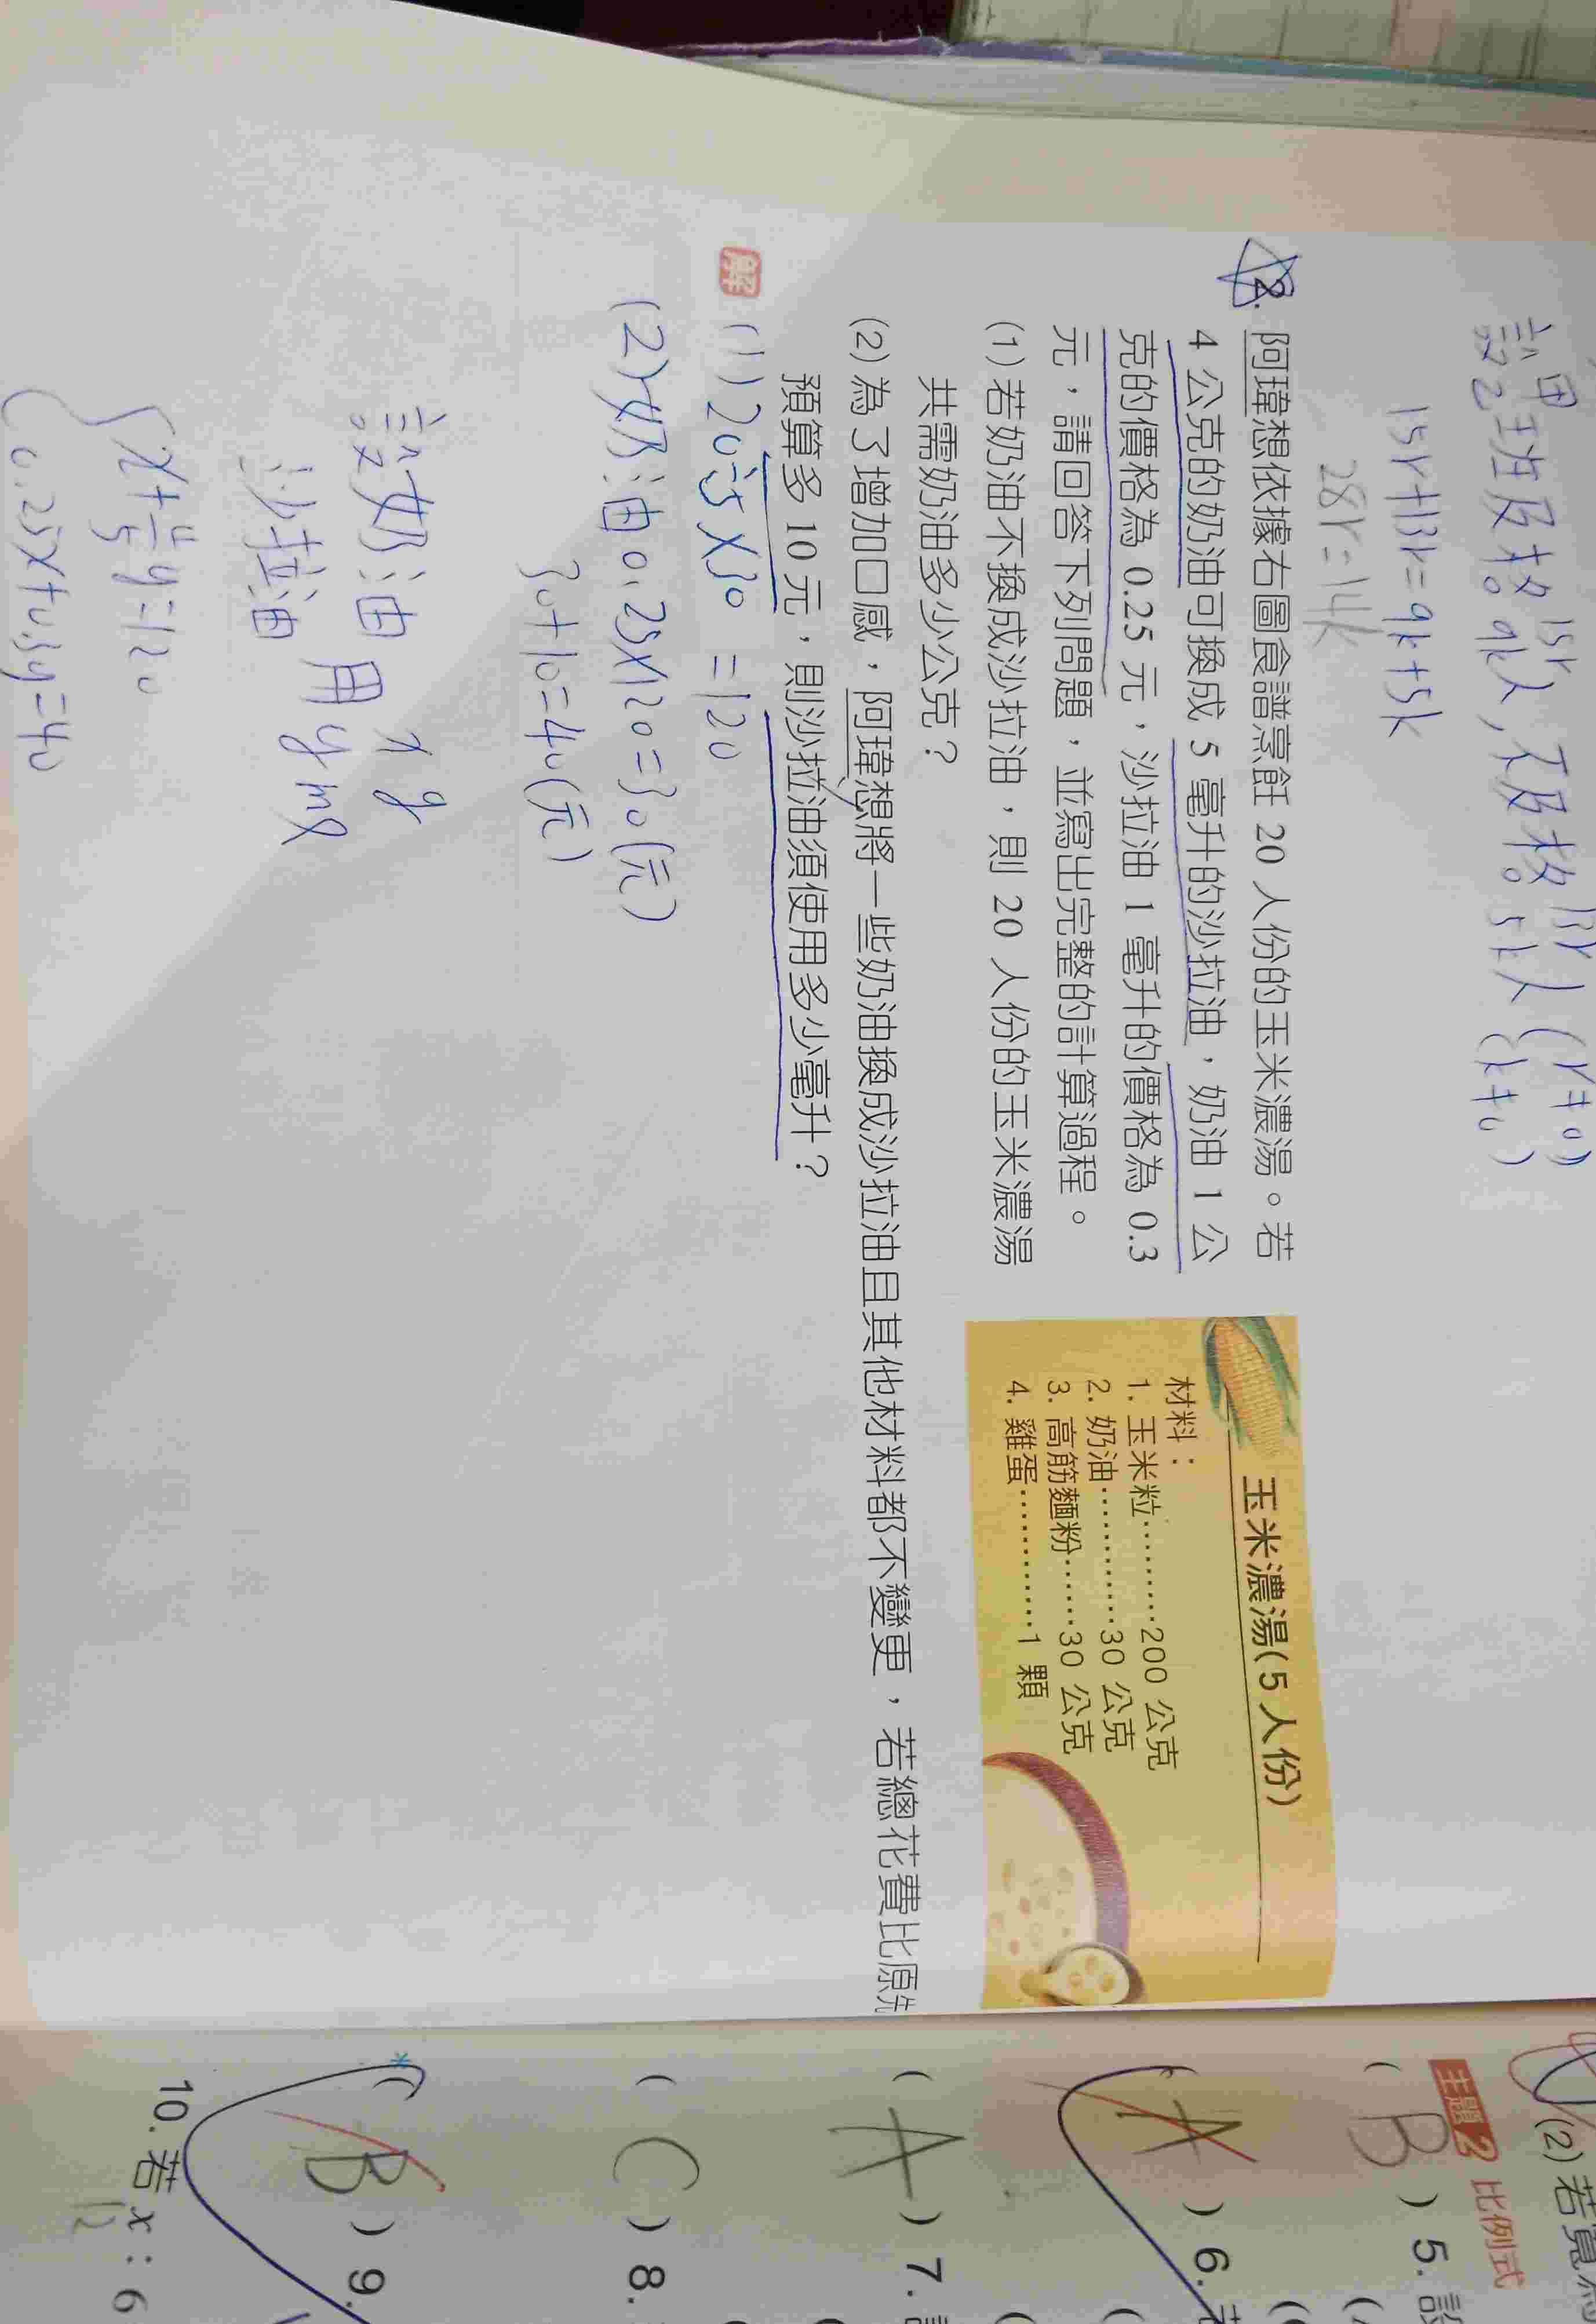 設甲班及格15r人，不及格13r人(r≠0)
乙 9k人 5k人(k≠0)
15r+13r=9k+5k
28r=14k
2. 阿瑋想依據右圖食譜烹飪 20 人份的玉米濃湯。若
4 公克的奶油可換成 5 毫升的沙拉油，奶油 1 公
克的價格為 0.25 元，沙拉油 1 毫升的價格為 0.3
元，請回答下列問題，並寫出完整的計算過程。
(1) 若奶油不換成沙拉油，則 20 人份的玉米濃湯
共需奶油多少公克？
(2) 為了增加口感，阿瑋想將一些奶油換成沙拉油且其他材料都不變更，若總花費比原先
預算多 10 元，則沙拉油須使用多少毫升？
玉米濃湯(5人份)
材料：
1. 玉米粒………200 公克
2. 奶油…………30 公克
3. 高筋麵粉……30 公克
4. 雞蛋…………1 顆
解
(1) 20÷5×30 =120
(2) 奶油 0.25×120=30(元)
30+10=40(元)
設奶油用 x g
沙拉油用 y ml
x+4/5y=120
0.25x+0.3y=40
(2) 若
主題2 比例式
( B ) 5.
( A ) 6.
( A ) 7.
( C ) 8.
*( B ) 9.
10. 若 x：6
12